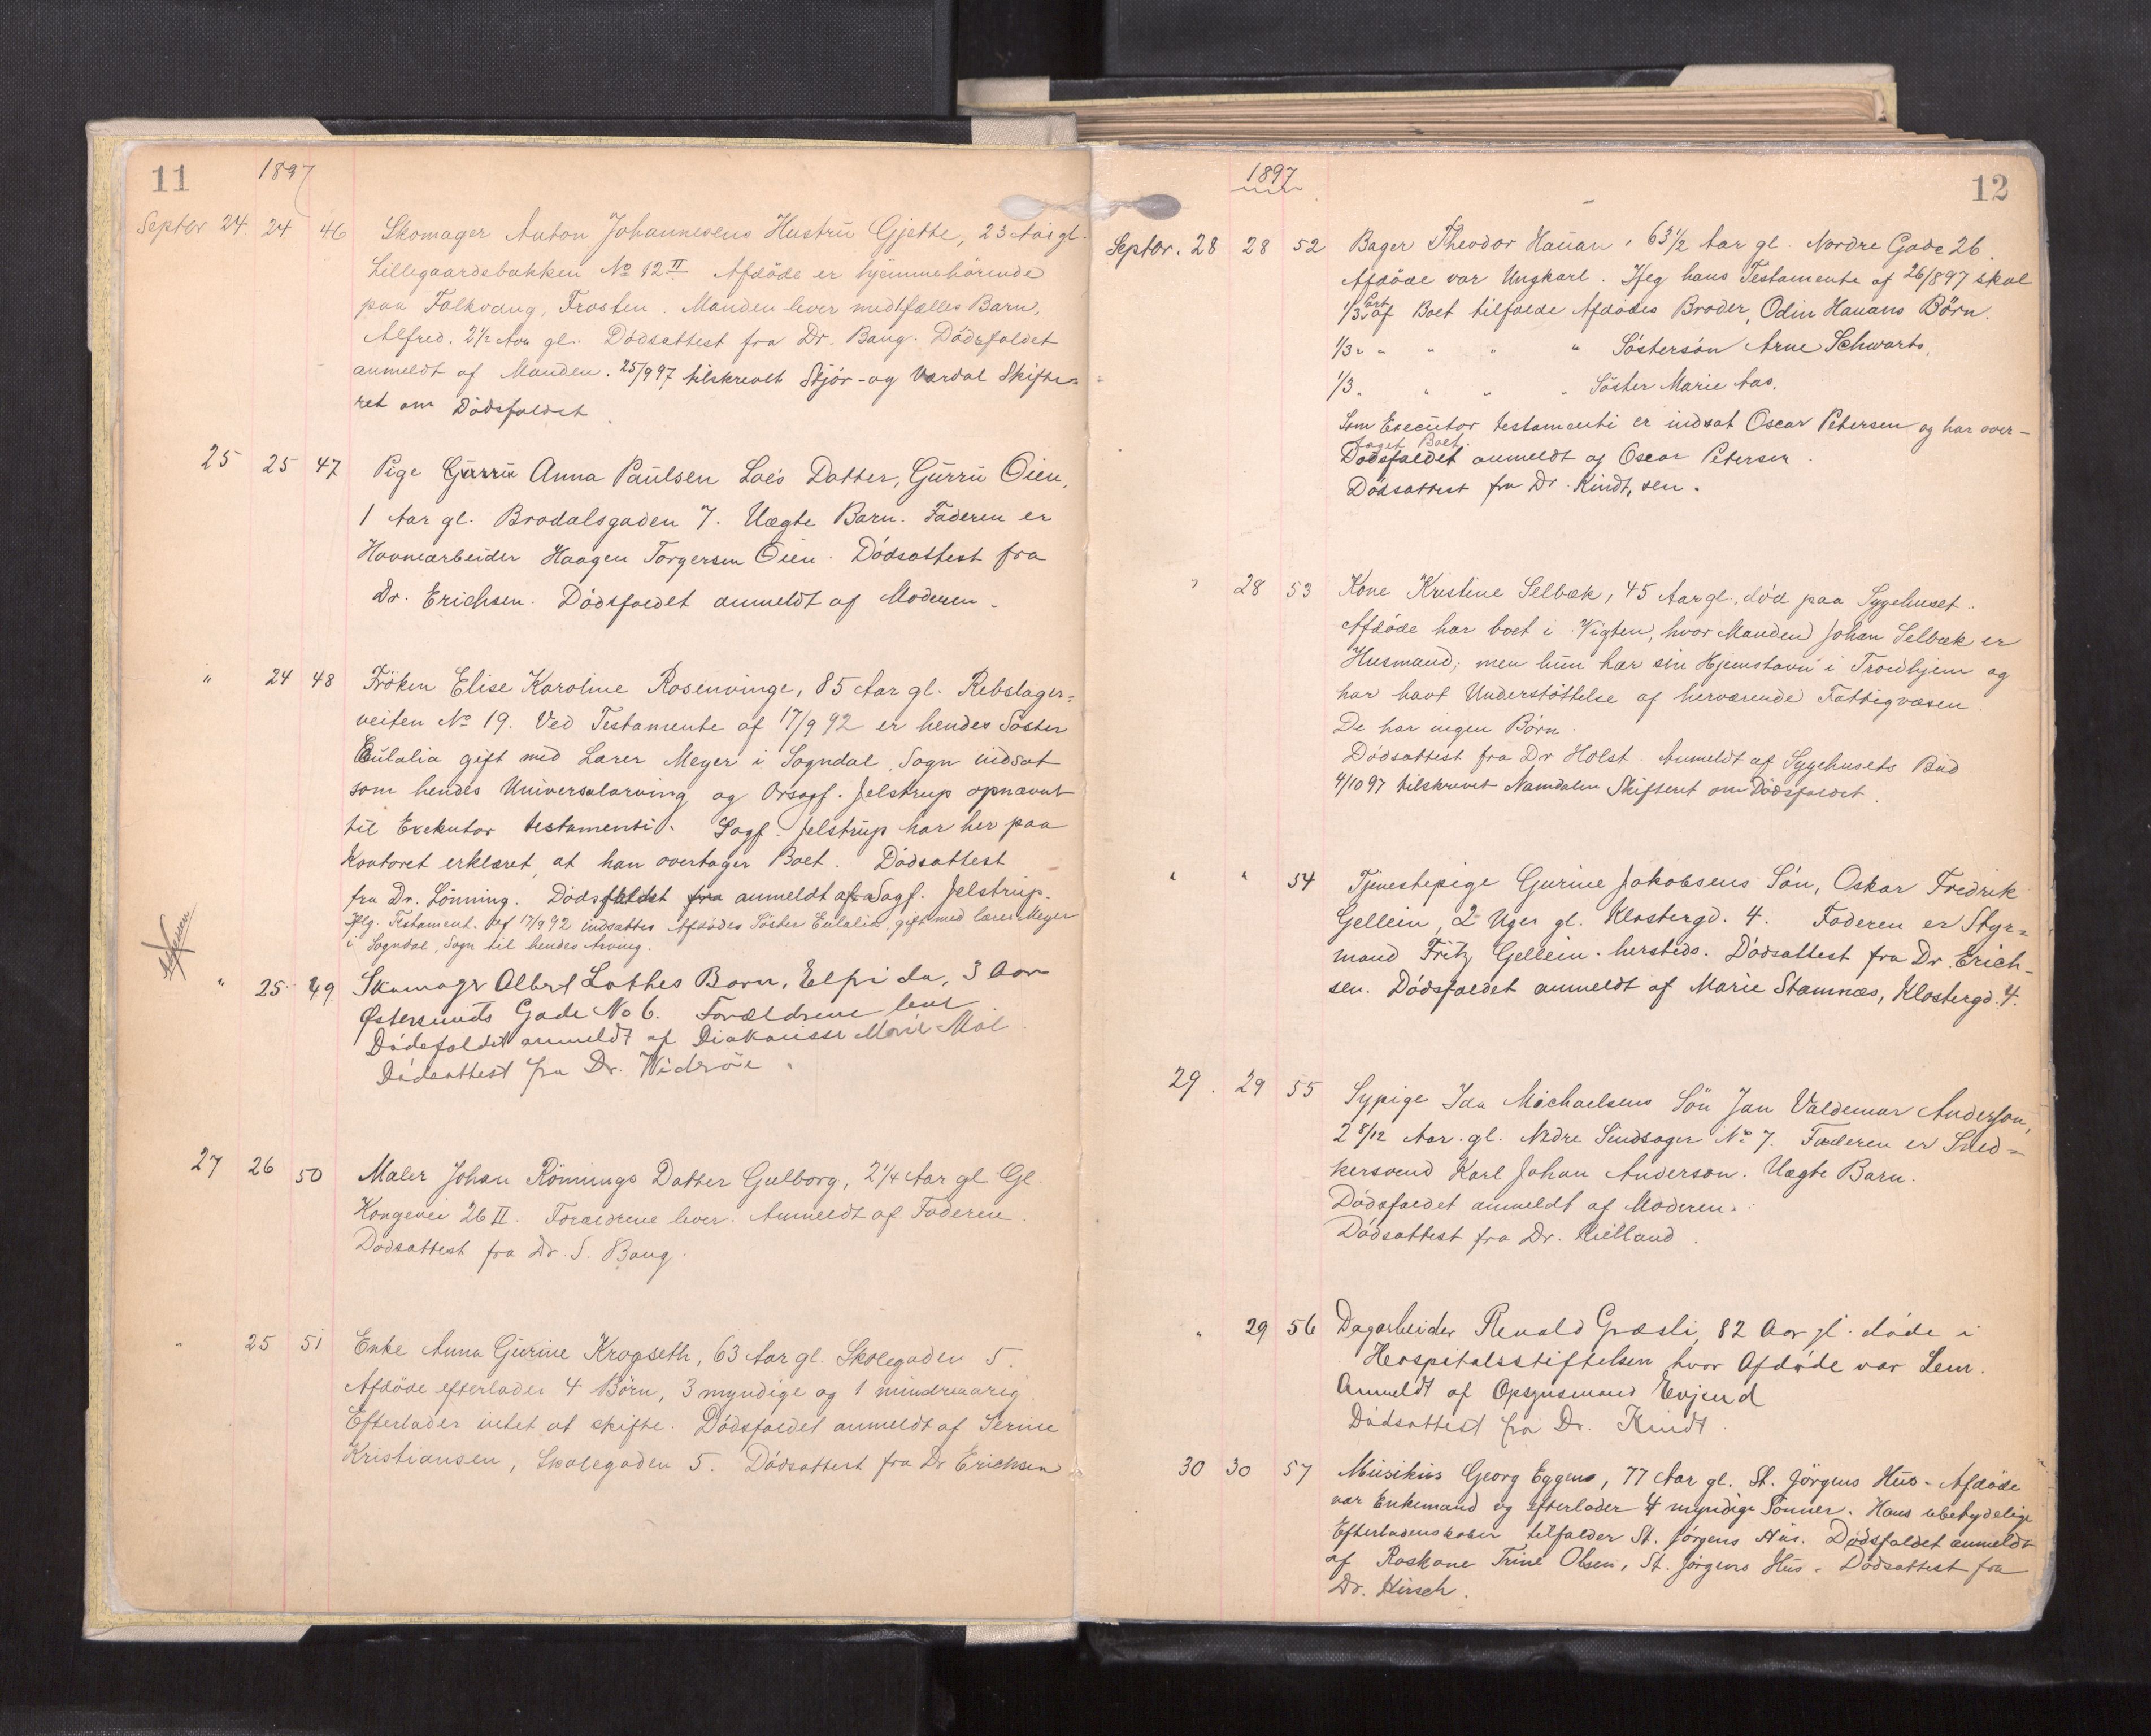 11
1897
Septbr 24 24 46 Skomager Anton Johannesens Hustru Gjette, 23 Aar gl.
Lillegaardsbakken No 12 II Afdöde er hjemmehörende
paa Falkvang, Frosten. Manden lever med fælles Barn,
Alfred, 2½ Aar gl. Dödsattest fra Dr. Bang. Dödsfaldet
anmeldt af Manden. 25/9 97 tilskrevet Stjör- og Værdal Skifte-
ret om Dödsfaldet.
25 25 47 Pige Gurru Anna Paulsen Loës Datter, Gurru Öien,
1 Aar gl. Brodalsgaden 7. Uægte Barn. Faderen er
Havnearbeider Haagen Torgersen Öien. Dödsattest fra
Dr. Erichsen. Dödsfaldet anmeldt af Moderen.
" 24 48 Fröken Elise Karoline Rosenvinge, 85 Aar gl. Rebslager-
veiten No 19. Ved Testamente af 17/9 92 er hendes Söster
Eulalia gift med Lærer Meyer i Sogndal, Sogn indsat
som hendes Universalarving og Orsagf. Jelstrup opnævnt
til Exekutor testamenti. Sagf. Jelstrup har her paa
Kontoret erklæret, at han overtager Boet. Dödsattest
fra Dr. Lönning. Dödsfaldet fra anmeldt af Sagf. Jelstrup.
Iflg. Testament. af 17/9 92 indsattes Afdödes Söster Eulalia, gift med lærer Meyer
i Sogndal, Sogn til hendes Arving.
" 25 49 Skomagr Albert Lothes Barn, Elfrida, 3 Aar
Østersunds Gade No 6. Forældrene leve
Dödsfaldet anmeldt af Diakonisse Marie Moe
Dödsattest fra Dr. Widröe.
27 26 50 Maler Johan Rönnings Datter Gulborg, 2¼ Aar gl Gl.
Kongevei 26 II. Forældrene lever. Anmeldt af Faderen.
Dödsattest fra Dr. S. Bang.
" 25 51 Enke Anna Gurine Krogseth, 63 Aar gl. Skolegaden 5.
Afdöde efterlader 4 Börn, 3 myndige og 1 mindreaarig.
Efterlader intet at skifte. Dödsfaldet anmeldt af Serine
Kristiansen, Skolegaden 5. Dödsattest fra Dr Erichsen
1897
12
Septbr. 28 28 52 Bager Theodor Hauan, 63½ Aar gl. Nordre Gade 26.
Afdöde var Ungkarl. Iflg hans Testamente af 26/897 skal
1/3 Part af Boet tilfalde Afdödes Broder, Odin Hauans Börn.
1/3 " " " " Söstersön Arne Schwartz,
1/3 " " " " Söster Marie Aas.
Som Executor testamenti er indsat Oscar Petersen og har over-
taget Boet.
Dödsfaldet anmeldt af Oscar Petersen.
Dödsattest fra Dr. Kindt, sen.
" 28 53 Kone Kristine Selbæk, 45 Aar gl., död paa Sygehuset.
Afdöde har boet i Vigten, hvor Manden Johan Selbæk er
Husmand; men hun har sin Hjemstavn i Trondhjem og
har havt Understöttelse af herværende Fattigvæsen.
De har ingen Börn.
Dödsattest fra Dr Holst. Anmeldt af Sygehusets Bud
4/10 97 tilskrevet Namdalen Skifteret om Dödsfaldet.
" " 54 Tjenestepige Gurine Jakobsens Sön, Oskar Fredrik
Gellein, 2 Uger gl. Klostergd. 4. Faderen er Styr-
mand Fritz Gellein. hersteds. Dödsattest fra Dr. Erich-
sen. Dödsfaldet anmeldt af Marie Stamnæs, Klostergd. 4.
29. 29 55 Sypige Ida Michaelsens Sön Jan Valdemar Anderson,
2 8/12 Aar. gl. Nedre Sindsager No 7. Faderen er Sned-
kersvend Karl Johan Anderson. Uægte Barn.
Dödsfaldet anmeldt af Moderen.
Dödsattest fra Dr. Kielland.
" 29 56 Dagarbeider Renald Græsli, 82 Aar gl. döde i
Hospitalsstiftelsen hvor Afdöde var Lem.
Anmeldt af Opsynsmand Evjend
Dödsattest fra Dr. Kindt.
30 30 57 Musikus Georg Eggen, 77 Aar gl. St. Jörgens Hus. Afdöde
var Enkemand og efterlader 4 myndige Sönner. Hans ubetydelige
Efterladenskaber tilfalder St. Jörgens Hus. Dödsfaldet anmeldt
af Raskone Trine Olsen, St. Jörgens Hus. Dödsattest fra
Dr. Hirsch.